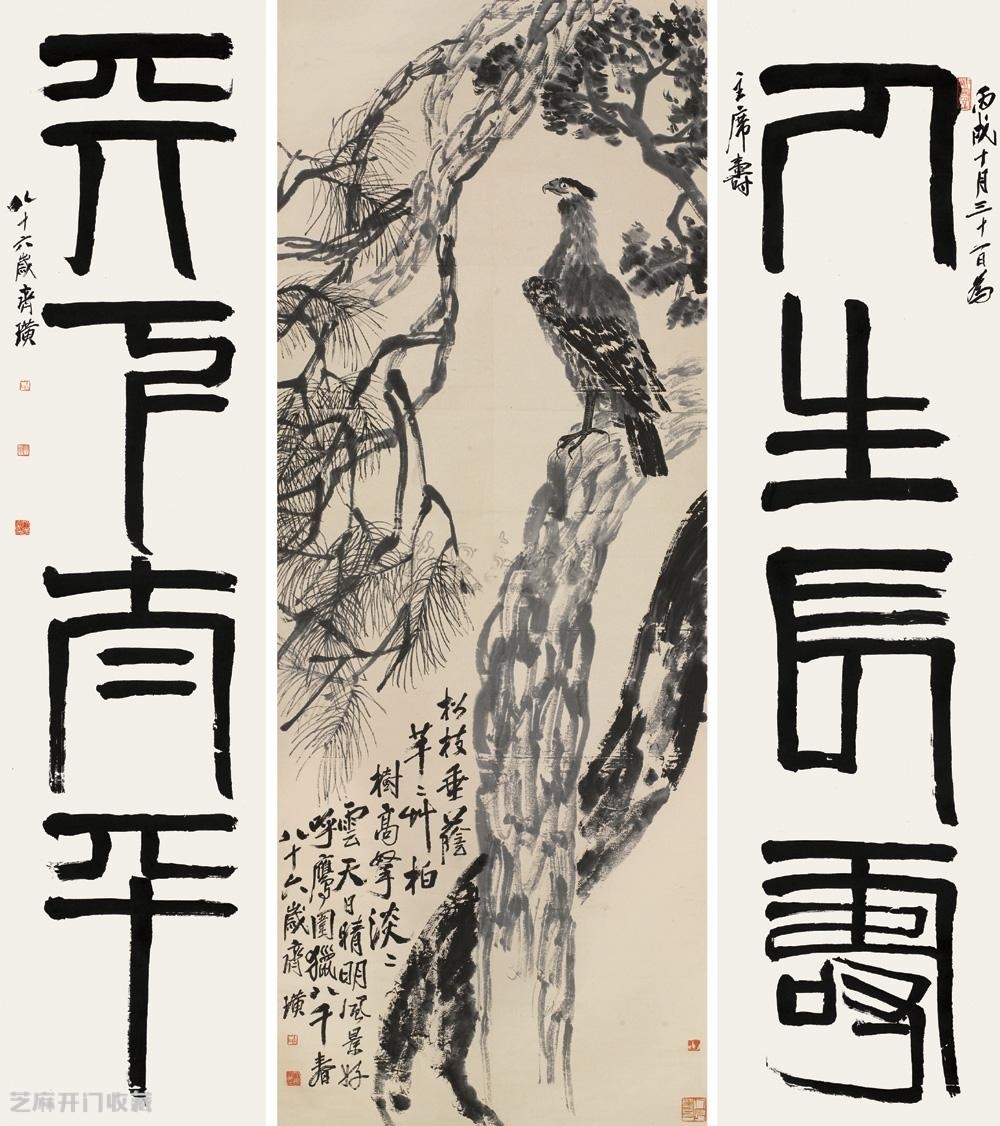 丙戌十月三十一日為
人生長壽
主席壽
松枝垂蔭
芊〻艸柏
樹高擎淡〻
雲天日晴明風景好
呼鷹圍獵八千春
八十六歲齊璜
天下太平
八十六歲齊璜
芝麻开门收藏